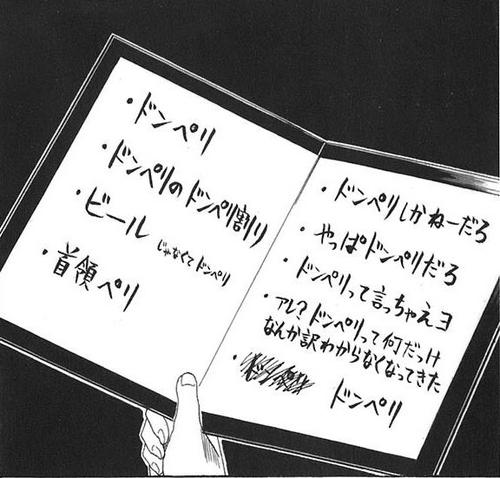 ・ドンペリ
・ドンペリのドンペリ割り
・ビール じゃなくてドンペリ
・首領ペリ
・ドンペリしかねーだろ
・やっぱドンペリだろ
・ドンペリって言っちゃえヨ
・アレ?ドンペリって何だっけ
なんか訳わからなくなってきた
・ ドンペリ